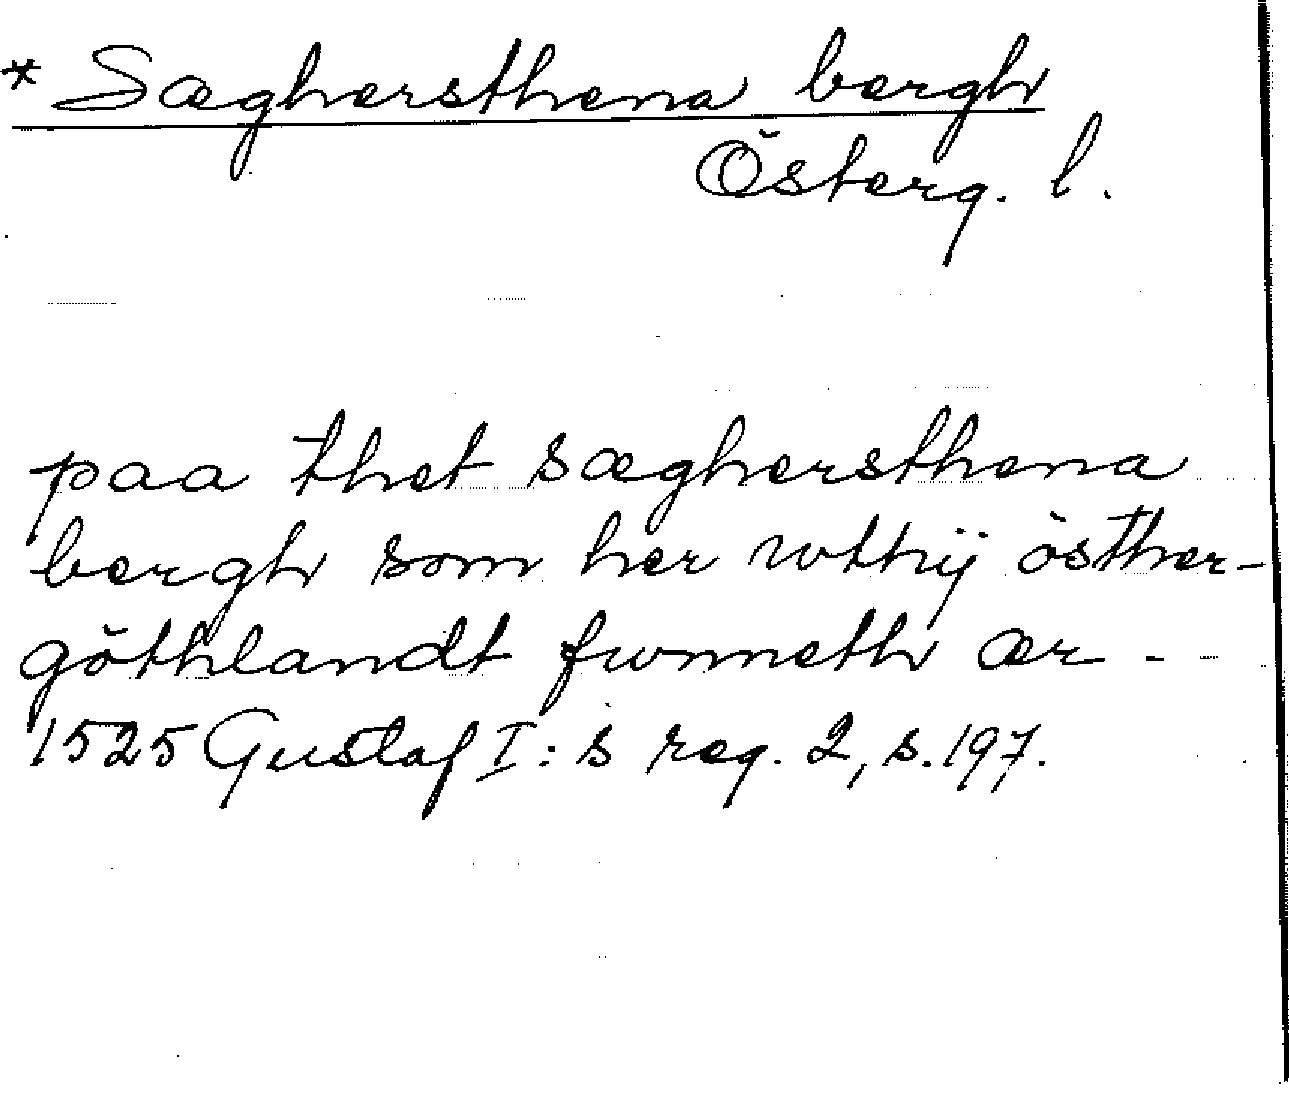 * Sæghersthena bergh
Österg. l.
paa thet sæghersthena
bergh som her wthij östher-
göthlandt fwnneth ær - -
1525 Gustaf I:s reg. 2, s. 197.